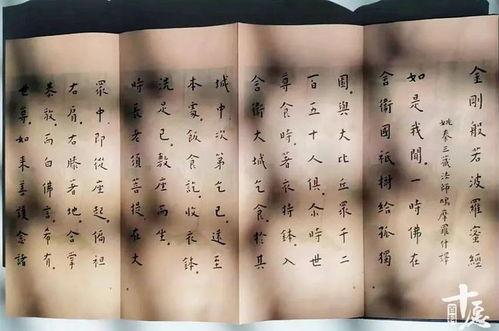 金剛般若波羅蜜經
姚秦三藏法師鳩摩羅什譯
如是我聞。一時佛在
舍衛國祇樹給孤獨
園。與大比丘眾千二
百五十人俱。尒時世
尊食時。著衣持鉢。入
舍衛大城乞食。於其
城中次第乞已。還至
本處。飯食訖。收衣鉢。
洗足已。敷座而坐。
時長老須菩提在大
眾中即從座起。偏袒
右肩。右膝著地。合掌
恭敬。而白佛言。希有。
世尊。如來善護念諸
百科